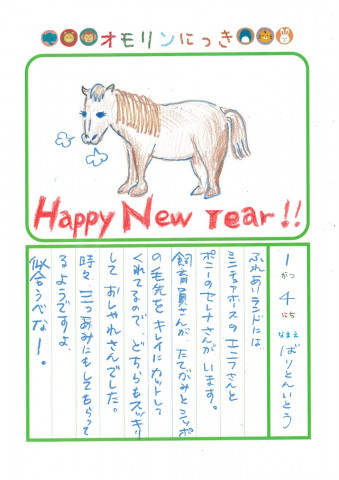 オモリンにっき
Happy New Year!!
1がつ4にち なまえ ばりとんいとう
ふれあいランドには、
ミニチュアホースのエニラさんと
ポニーのセーナさんがいます。
飼育員さんが、たてがみとシッポ
の毛先をキレイにカットして
くれてるので、どちらもスッキリ
して おしゃれさんでした。
時々、三つあみにもしてもらって
るようですよ。
似合うべな!。